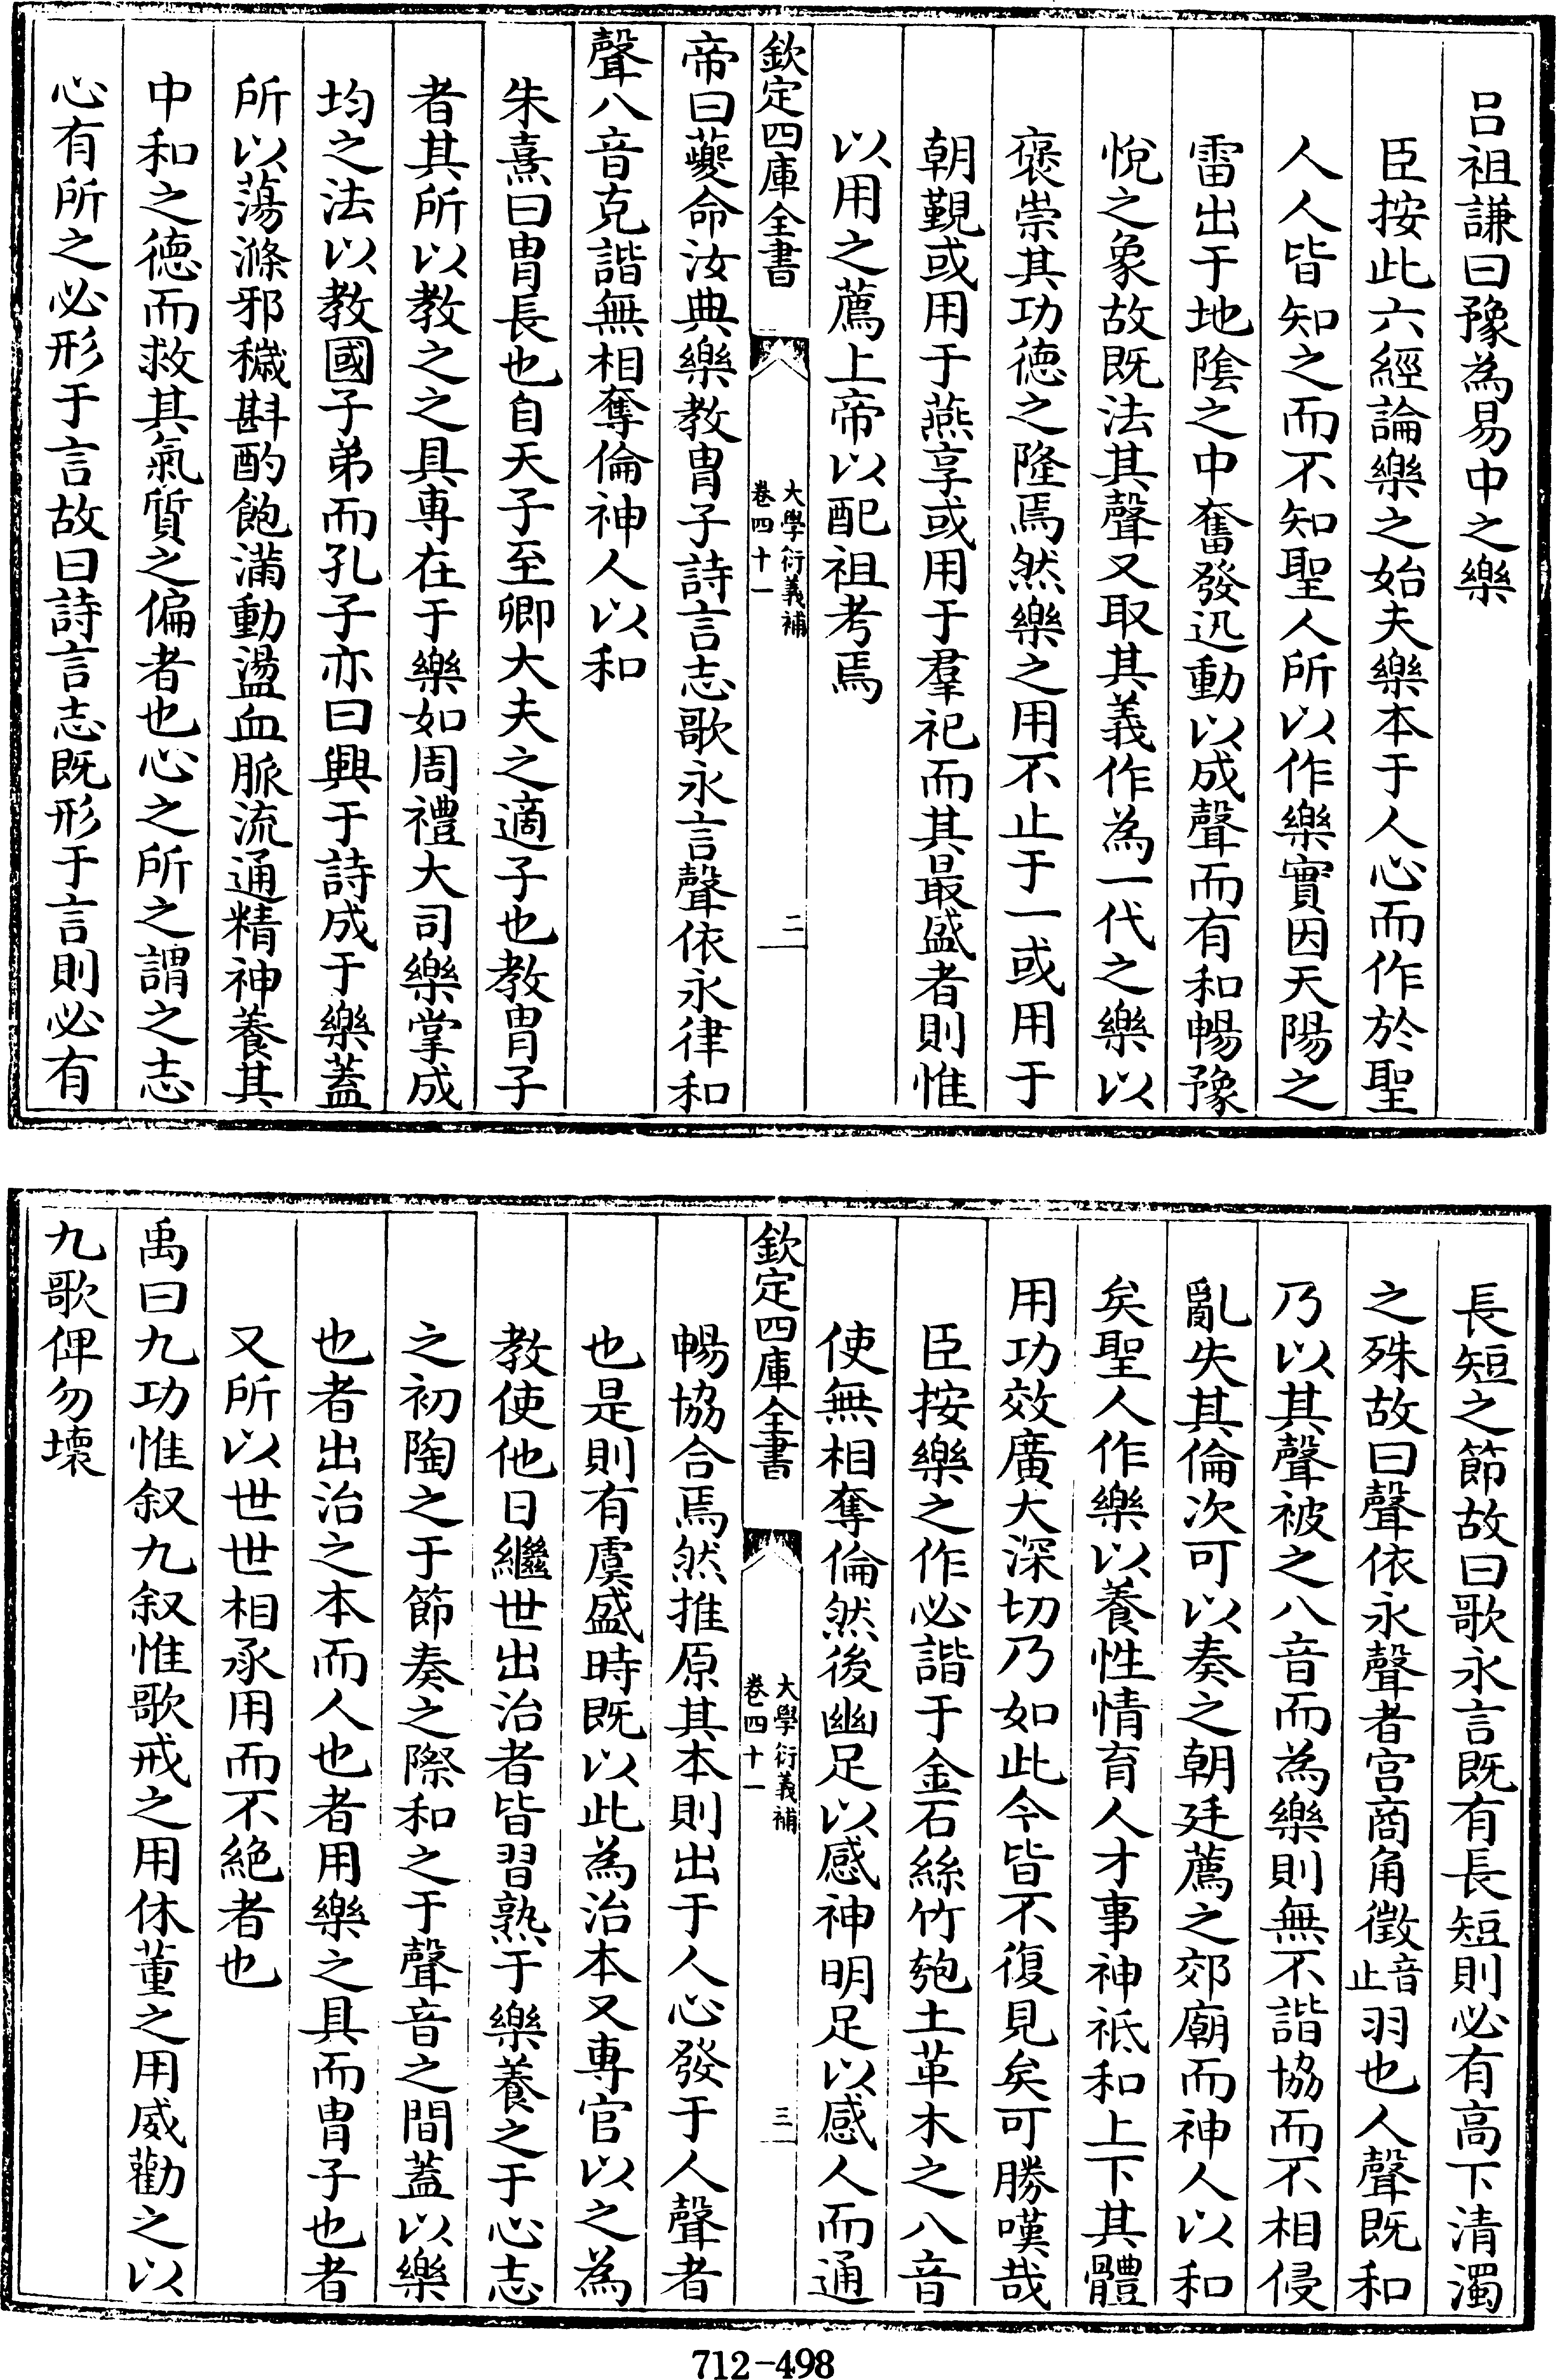 呂祖謙曰豫為易中之樂
臣按此六經論樂之始夫樂本于人心而作於聖
人人皆知之而不知聖人所以作樂實因天陽之
雷出于地陰之中奮發迅動以成聲而有和暢豫
悅之象故既法其聲又取其義作為一代之樂以
褒崇其功德之隆焉然樂之用不止于一或用于
朝覲或用于燕享或用于羣祀而其最盛者則惟
以用之薦上帝以配祖考焉
欽定四庫全書
大學衍義補
卷四十一
二
帝曰夔命汝典樂教胄子詩言志歌永言聲依永律和
聲八音克諧無相奪倫神人以和
朱熹曰胄長也自天子至卿大夫之適子也教胄子
者其所以教之之具專在于樂如周禮大司樂掌成
均之法以教國子弟而孔子亦曰興于詩成于樂蓋
所以蕩滌邪穢斟酌飽滿動盪血脈流通精神養其
中和之德而救其氣質之偏者也心之所之謂之志
心有所之必形于言故曰詩言志既形于言則必有
長短之節故曰歌永言既有長短則必有高下清濁
之殊故曰聲依永聲者宮商角徵音止羽也人聲既和
乃以其聲被之八音而為樂則無不諧協而不相侵
亂失其倫次可以奏之朝廷薦之郊廟而神人以和
矣聖人作樂以養性情育人才事神祗和上下其體
用功效廣大深切乃如此今皆不復見矣可勝嘆哉
臣按樂之作必諧于金石絲竹匏土革木之八音
使無相奪倫然後幽足以感神明足以感人而通
欽定四庫全書
大學衍義補
卷四十一
三
暢協合焉然推原其本則出于人心發于人聲者
也是則有虞盛時既以此為治本又專官以之為
教使他日繼世出治者皆習熟于樂養之于心志
之初陶之于節奏之際和之于聲音之間蓋以樂
也者出治之本而人也者用樂之具而胄子也者
又所以世世相承用而不絕者也
禹曰九功惟叙九叙惟歌戒之用休董之用威勸之以
九歌俾勿壞
712-498